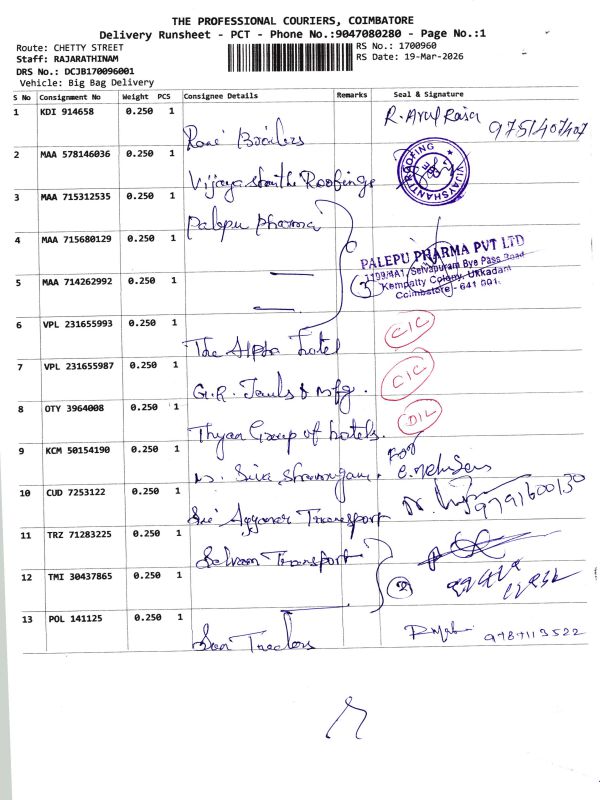 THE PROFESSIONAL COURIERS, COIMBATORE
Delivery Runsheet - PCT - Phone No.:9047080280 - Page No.:1
Route: CHETTY STREET
RS No.: 1700960
Staff: RAJARATHINAM
RS Date: 19-Mar-2026
DRS No.: DCJB170096001
Vehicle: Big Bag Delivery
S No Consignment No Weight PCS Consignee Details Remarks Seal & Signature
1 KDI 914658 0.250 1 R. Arul Rasa 9751407407
2 MAA 578146036 0.250 1 Roofings
VIJAYSHANTI ROOFING
3 MAA 715312535 0.250 1 Palepu pharma
4 MAA 715680129 0.250 1
PALEPU PHARMA PVT LTD
1109/4A1, Selvapuram Bye Pass Road
Kempatty Colony, Ukkadam
Coimbatore - 641 001.
5 MAA 714262992 0.250 1 3
6 VPL 231655993 0.250 1 The Alpha hotel CIC
7 VPL 231655987 0.250 1 G.R. & mfg. CIC
8 OTY 3964008 0.250 1 Group of hotels. D/L
9 KCM 50154190 0.250 1 Siva for
10 CUD 7253122 0.250 1 Sri Ayyanar Transport 9791600130
11 TRZ 71283225 0.250 1 Selvam Transport
12 TMI 30437865 0.250 1 2
13 POL 141125 0.250 1 9787113522